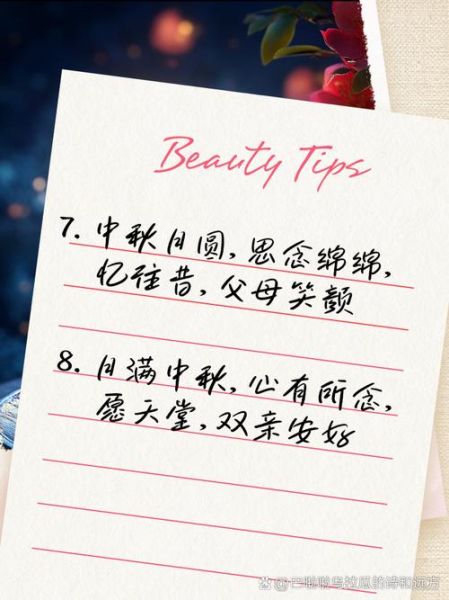 Beauty Tips
7. 中秋月圆,思念绵绵,
忆往昔,父母笑颜
8. 月满中秋,心有所念,
愿天堂,双亲安好